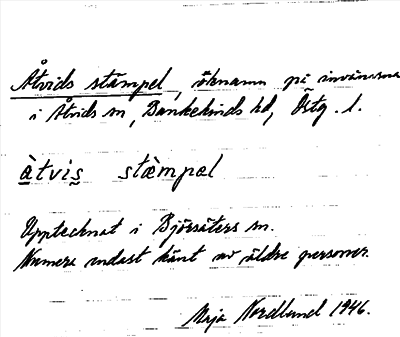 Åtvids stämpel, öknamn på invånarna
i Åtvids sn, Bankekinds hd, Östg. l.
àtvis stæmpæl
Upptecknat i Björsäters sn.
Numera endast känt av äldre personer.
Maja Nordlund 1946.